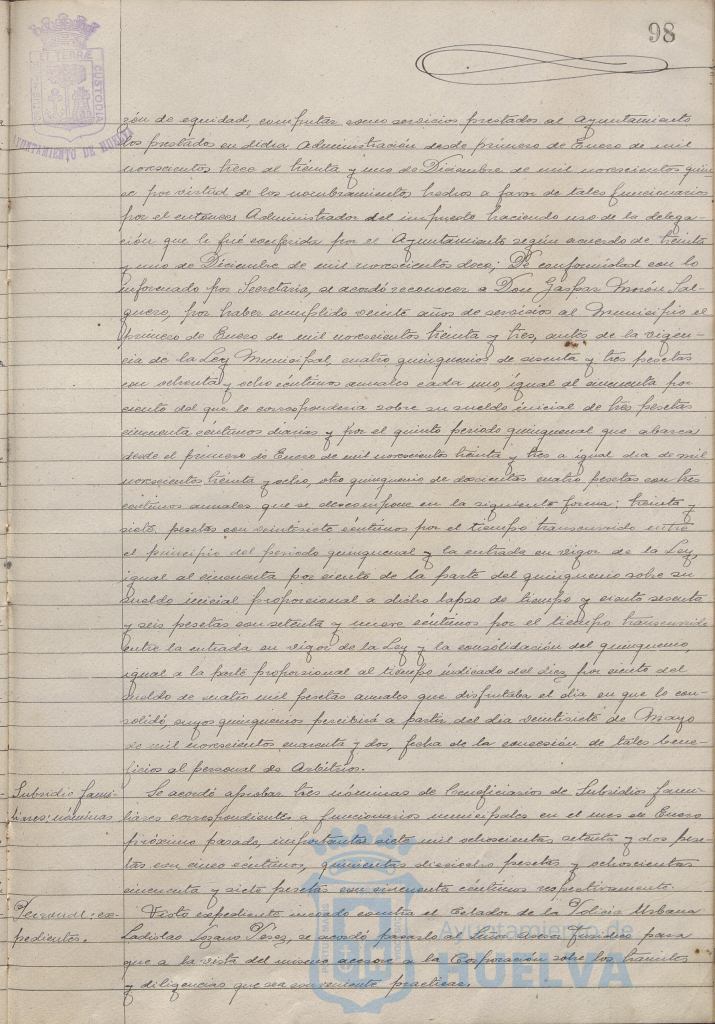 98
ET TERRÆ
CUSTODIA
AYUNTAMIENTO DE HUELVA
zón de equidad, computar como servicios prestados al Ayuntamiento
los prestados en dicha Administración desde primero de Enero de mil
novecientos trece al treinta y uno de Diciembre de mil novecientos quin
ce por virtud de los nombramientos hechos a favor de tales funcionarios
por el entonces Administrador del impuesto haciendo uso de la delega-
ción que le fué conferida por el Ayuntamiento según acuerdo de treinta
y uno de Diciembre de mil novecientos doce; De conformidad con lo
informado por Secretaria, se acordó reconocer a Don Gaspar Morón Sal-
guero, por haber cumplido veinte años de servicios al Municipio el
primero de Enero de mil novecientos treinta y tres, antes de la vigen-
cia de la Ley Municipal, cuatro quinquenios de sesenta y tres pesetas
con ochenta y ocho céntimos anuales cada uno, igual al cincuenta por
ciento del que le correspondería sobre su sueldo inicial de tres pesetas
cincuenta céntimos diarios y por el quinto periodo quinquenal que abarca
desde el primero de Enero de mil novecientos treinta y tres a igual dia de mil
novecientos treinta y ocho, otro quinquenio de doscientas cuatro pesetas con tres
céntimos anuales que se descompone en la siguiente forma: treinta y
siete pesetas con veintisiete céntimos por el tiempo transcurrido entre
el principio del periodo quinquenal y la entrada en vigor de la Ley,
igual al cincuenta por ciento de la parte del quinquenio sobre su
sueldo inicial proporcional a dicho lapso de tiempo y ciento sesenta
y seis pesetas con setenta y nueve céntimos por el tiempo transcurrido
entre la entrada en vigor de la Ley y la consolidación del quinquenio,
igual a la parte proporcional al tiempo indicado del diez por ciento del
sueldo de cuatro mil pesetas anuales que disfrutaba el dia en que lo con-
solidó, cuyos quinquenios percibirá a partir del dia veintisiete de Mayo
de mil novecientos cuarenta y dos, fecha de la concesión de tales bene-
ficios al personal de Arbitrios.
Subsidio fami-
liares: nóminas
Se acordó aprobar tres nóminas de beneficiarios de Subsidios fami-
liares correspondientes a funcionarios municipales en el mes de Enero
próximo pasado, importantes siete mil ochocientas setenta y dos pese-
tas con cinco céntimos, quinientas dieciocho pesetas y ochocientas
cincuenta y siete pesetas con cincuenta céntimos respectivamente.
Personal: ex-
pedientes.
Visto expediente incoado contra el Celador de la Policia Urbana
Ladislao Lozano Pérez, se acordó pasarlo al Señor Asesor Jurídico para
que a la vista del mismo asesore a la Corporación sobre los trámites
y diligencias que sea conveniente practicar.
Ayuntamiento de
HUELVA